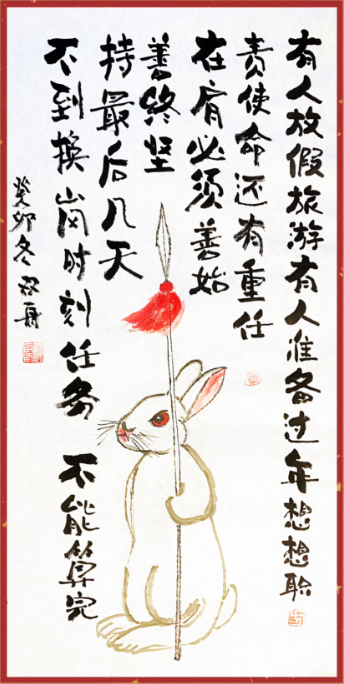 有人放假旅游有人准备过年想想职
责使命还有重任
在肩必须善始
善终坚
持最后几天
不到换岗时刻任务不能算完
癸卯冬